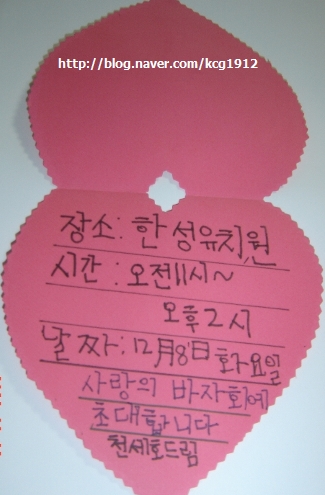 http://blog.naver.com/kcg1912
장소: 한성유치원
시간: 오전11시~
오후2시
날짜: 12月8日 화요일
사랑의 바자회에
초대합니다
천세호드림